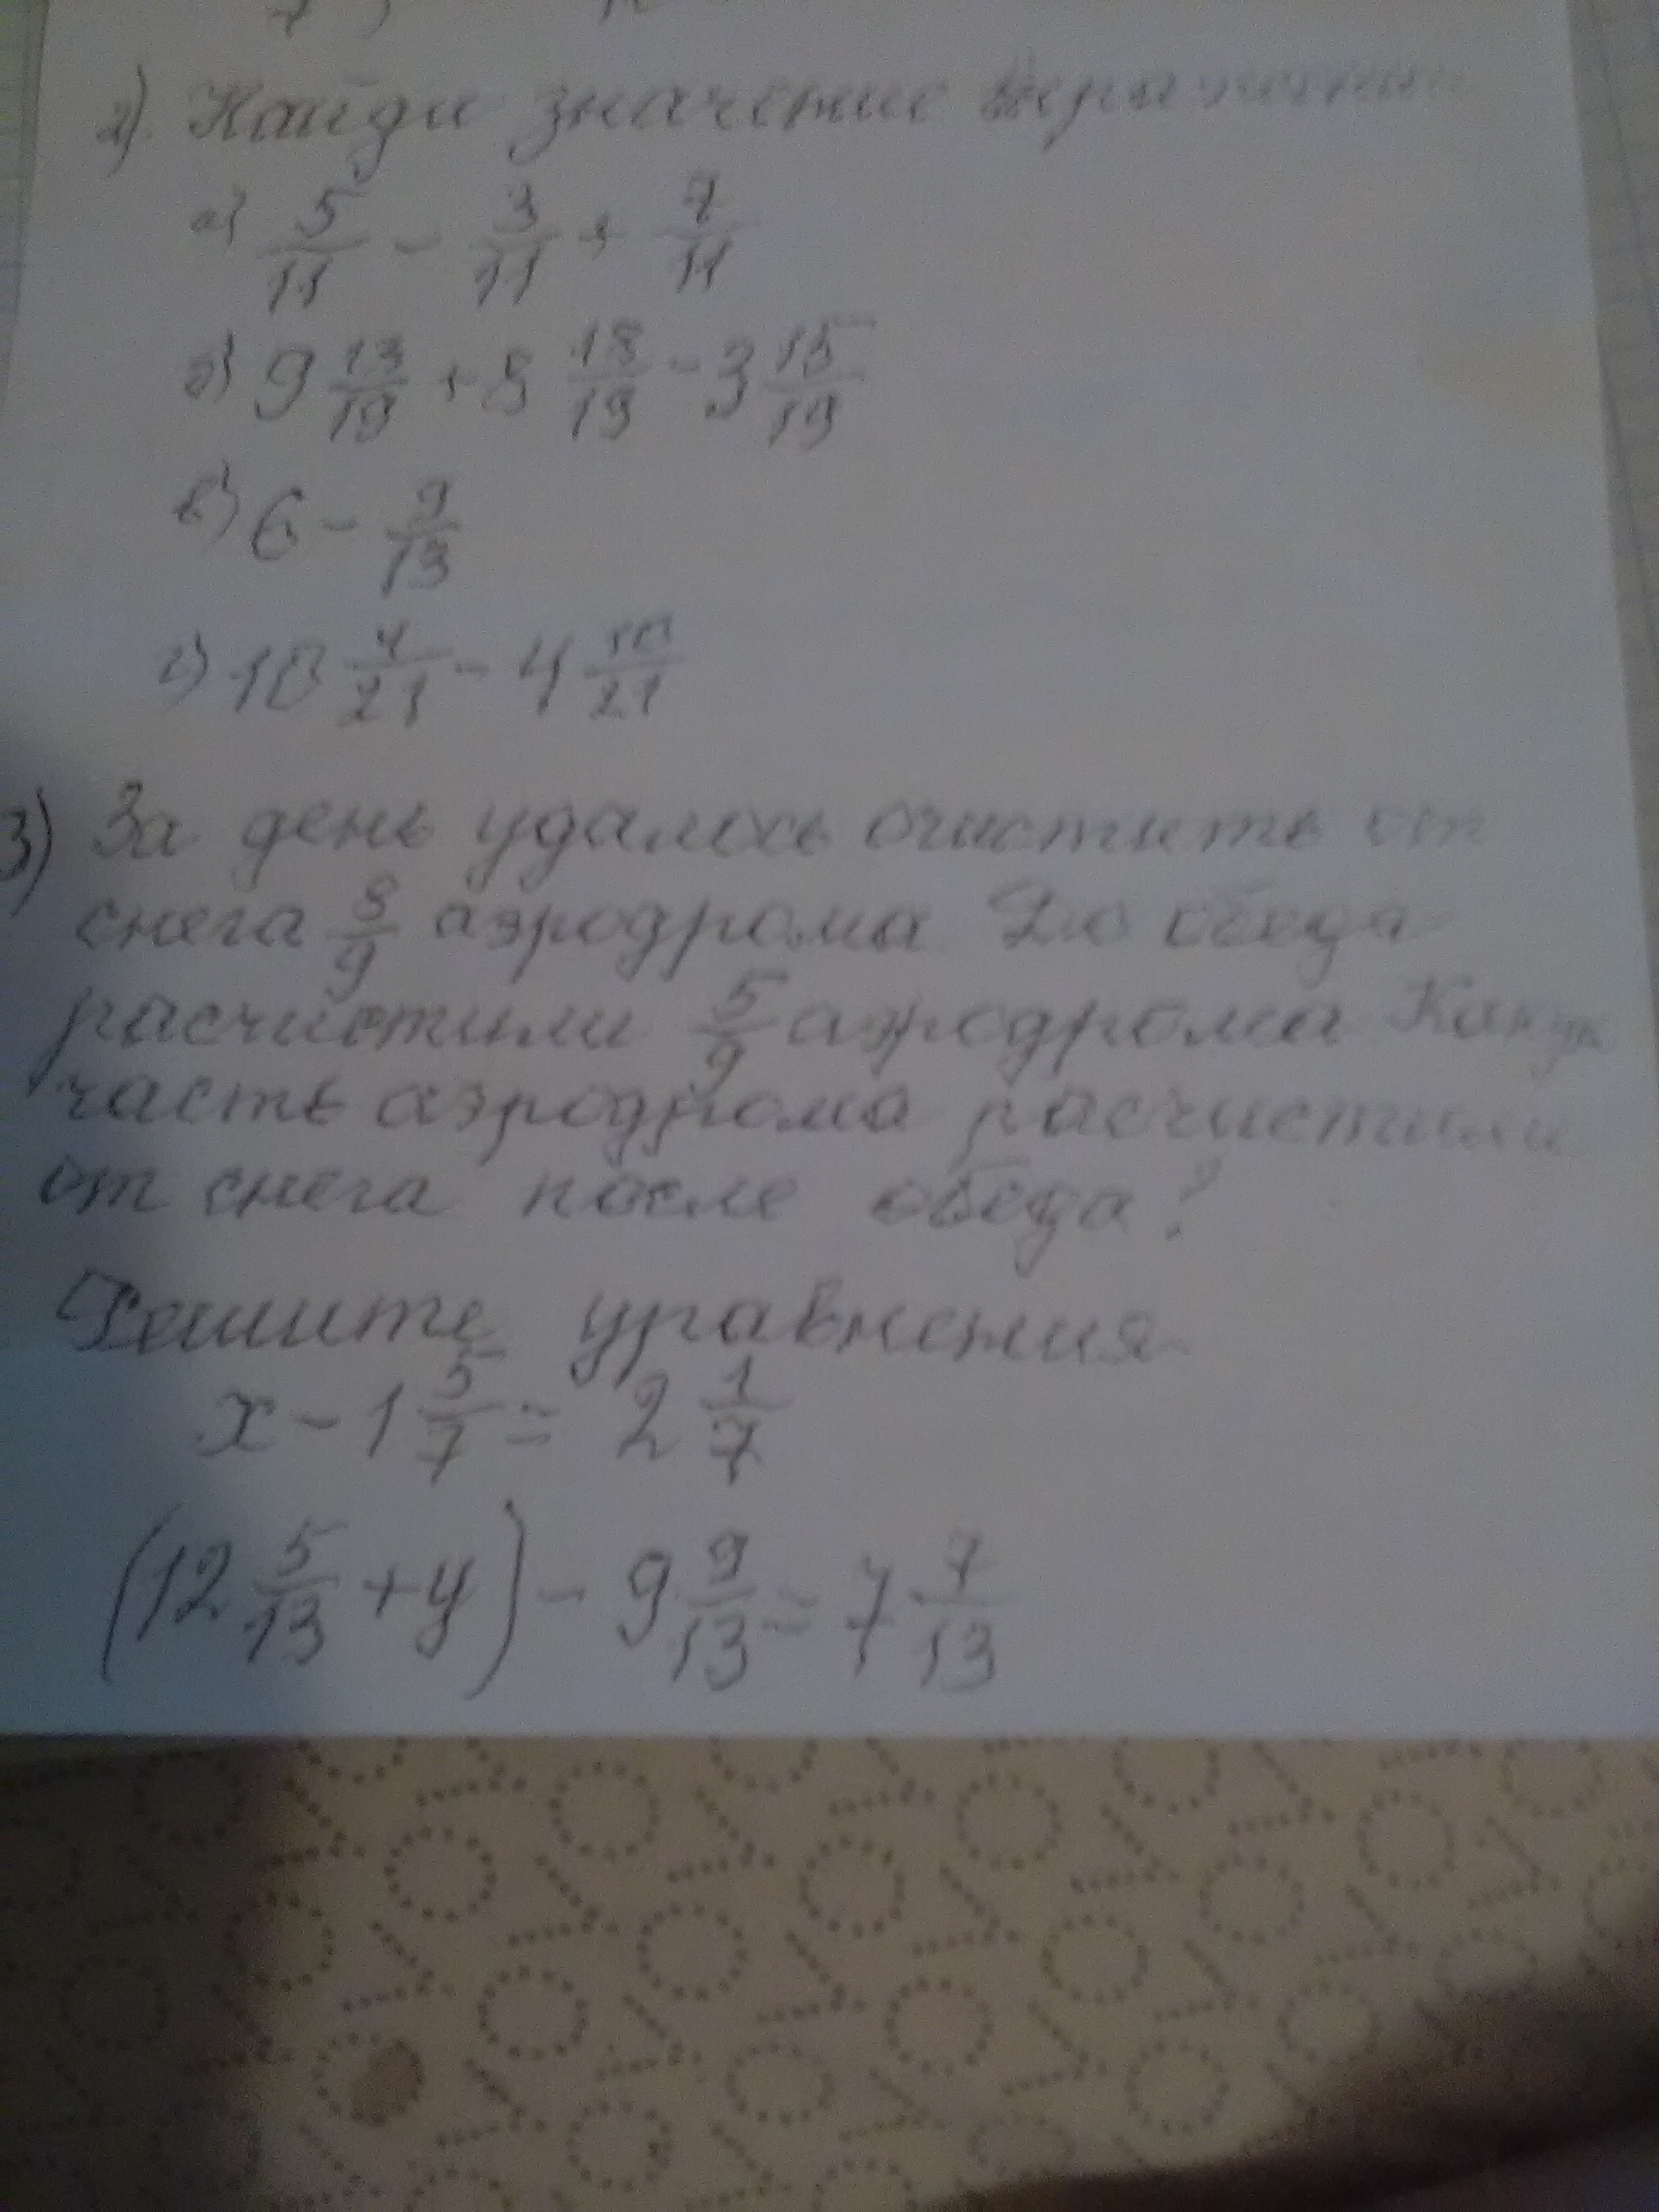 2). Найди значение выражения
а) 5/11 - 3/11 + 7/11
б) 9 13/19 + 8 18/19 - 3 15/19
в) 6 - 9/13
г) 10 4/21 - 4 10/21
3) За день удалось очистить от
снега 8/9 аэродрома До обеда
расчистили 5/9 аэродрома Какую
часть аэродрома расчистили
от снега после обеда?
Решите уравнения
x - 1 5/7 = 2 1/7
(12 5/13 + y) - 9 9/13 = 7 7/13